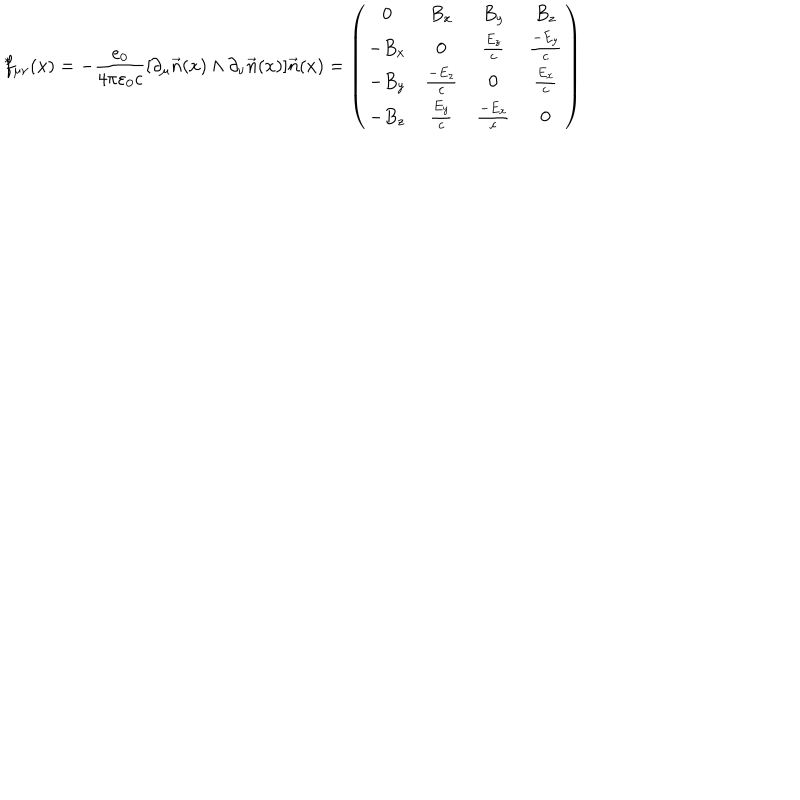 $^{*}f_{\mu\nu}(x) = -\frac{e_0}{4\pi\varepsilon_0 c}[\partial_\mu \vec{n}(x) \wedge \partial_\nu \vec{n}(x)]\vec{n}(x) = \begin{pmatrix} 0 & B_x & B_y & B_z \\ -B_x & 0 & \frac{E_z}{c} & \frac{-E_y}{c} \\ -B_y & \frac{-E_z}{c} & 0 & \frac{E_x}{c} \\ -B_z & \frac{E_y}{c} & \frac{-E_x}{c} & 0 \end{pmatrix}$